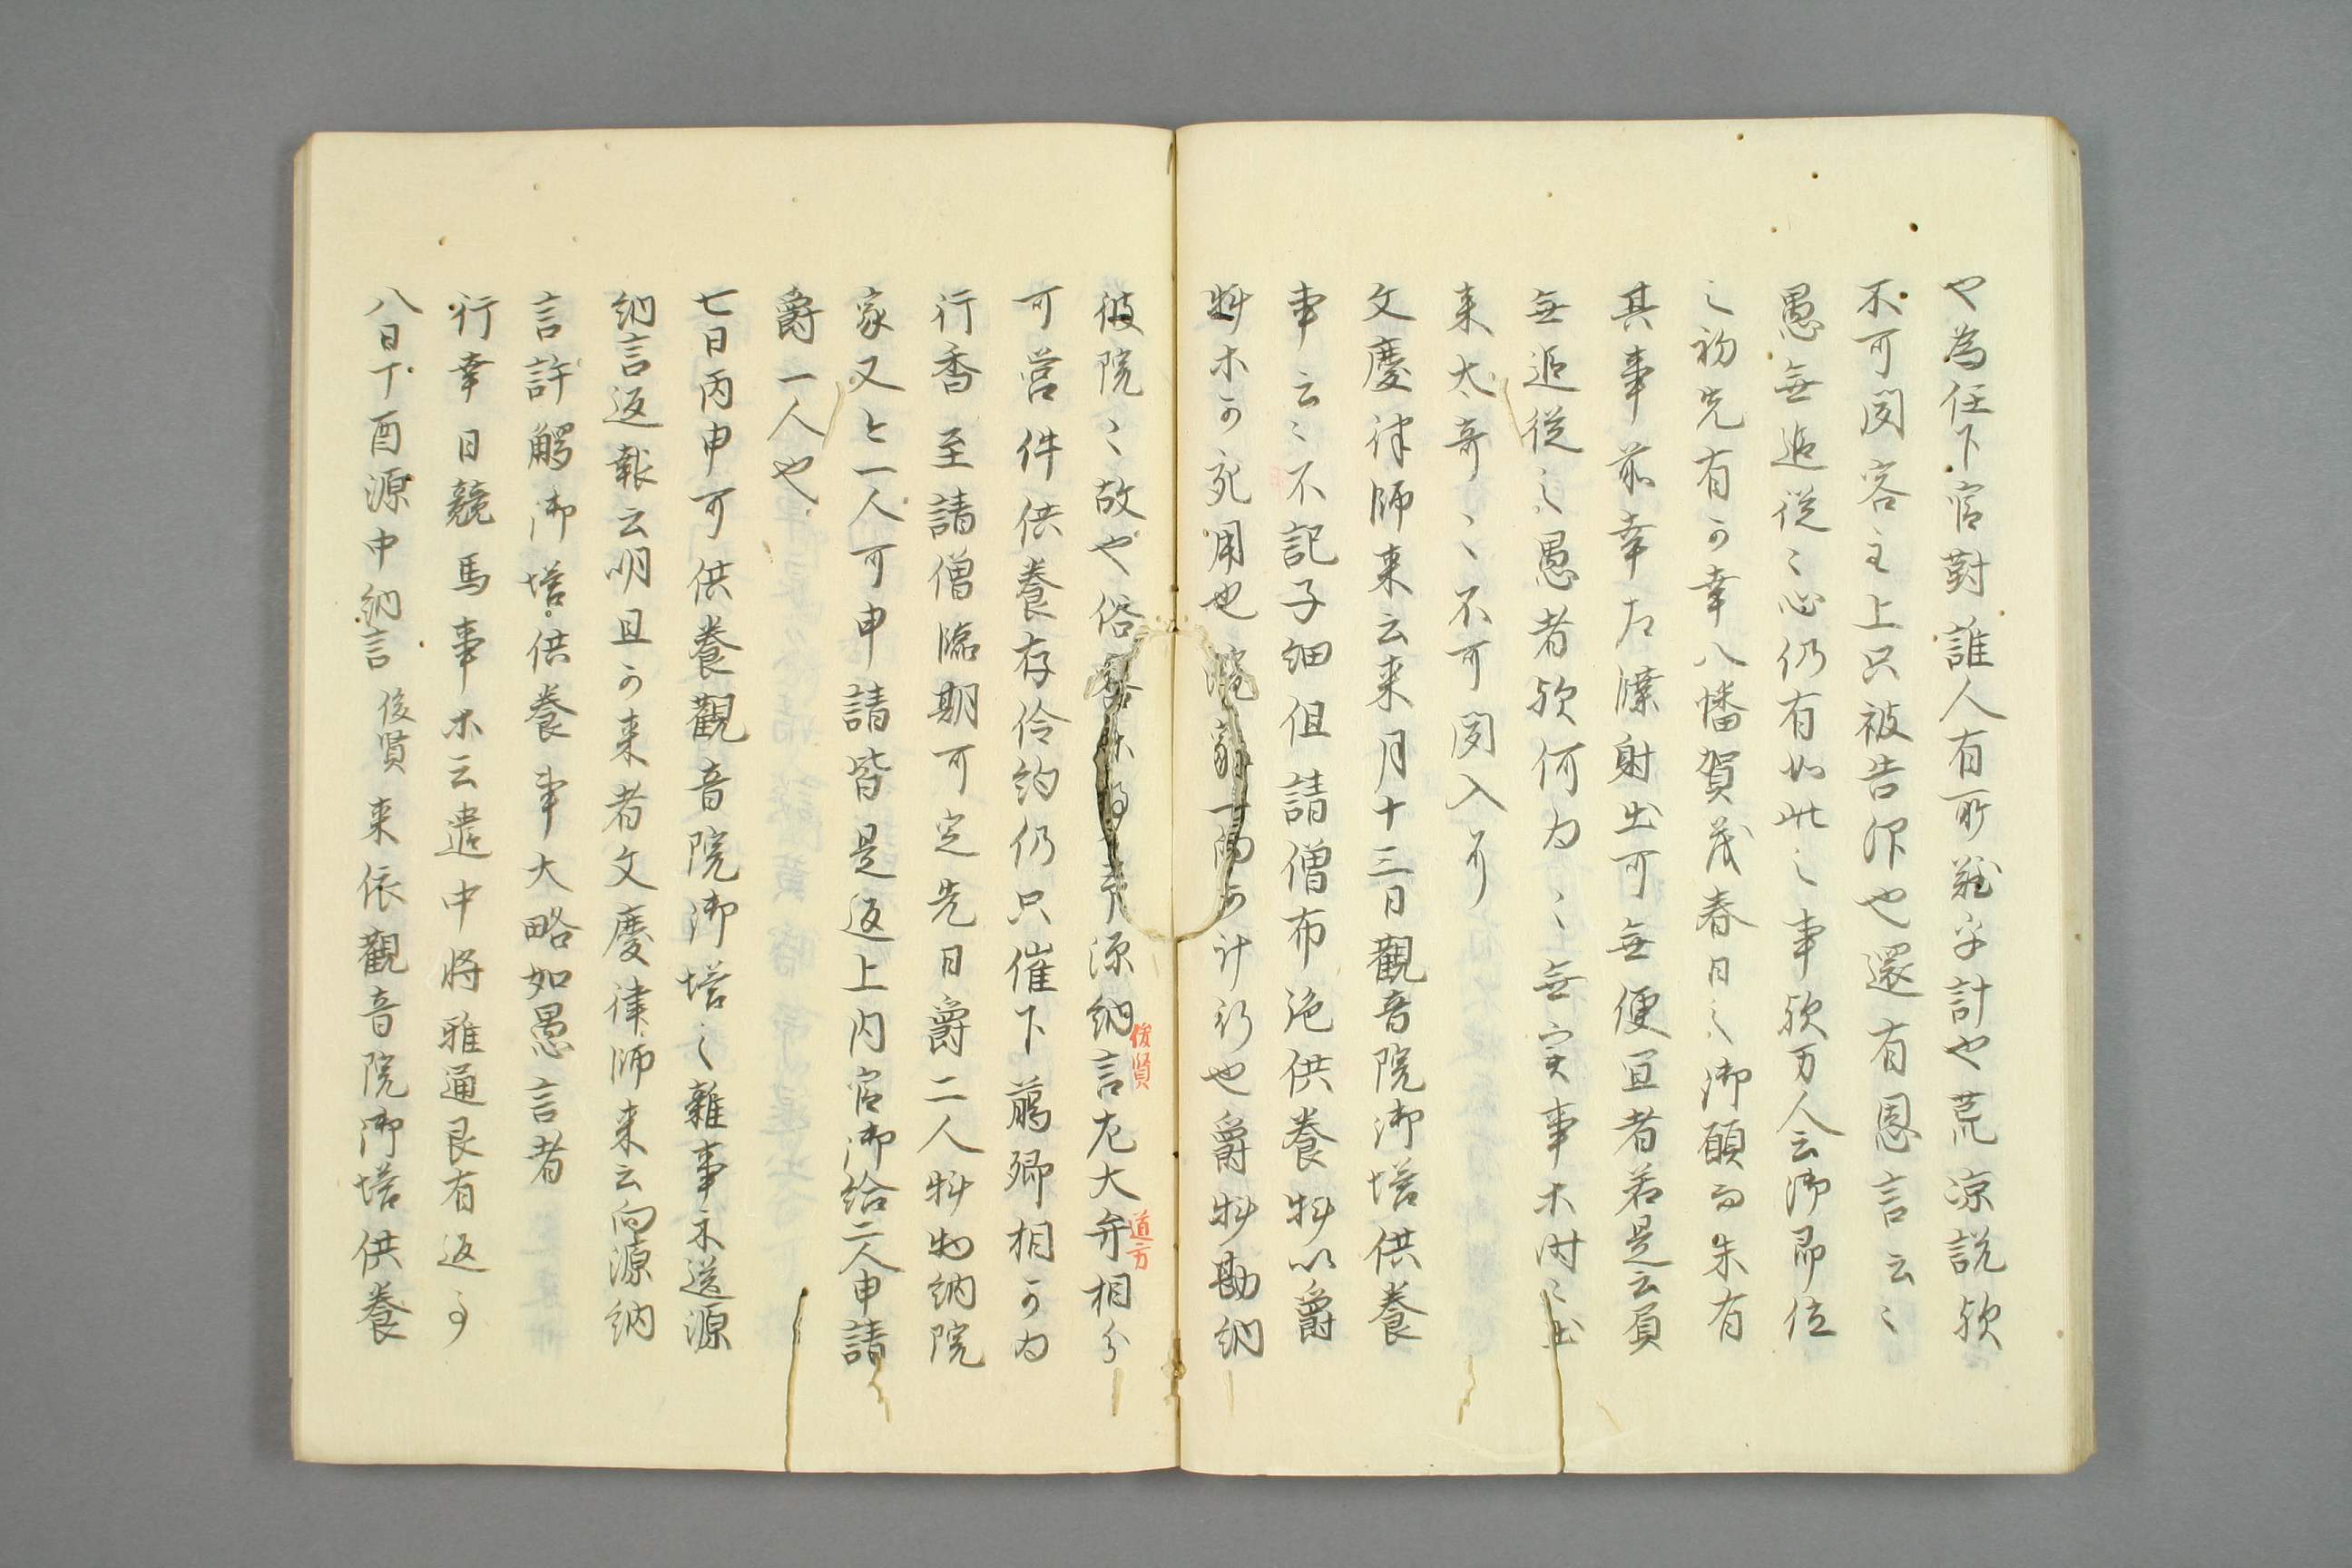 也為任下官對誰人有所難乎計也荒凉説欤
不可聞容主上只被告仰也還有恩言云〻
愚無追従〻心仍有如此之事欤万人云御即位
之初先有可幸八幡賀茂春日之御願而未有
其事前幸左 射出可無便宜者若是云負
無追従之愚者欤何為〻無実事木時〻出
来太奇〻不可聞入耳
文慶律師来云来月十三日觀音院御塔供養
事云〻不記子細但請僧布施供養料以爵
料木可宛用也 家 可計行也爵料勘納
彼院〻故也俗客 源納言左大弁相分
俊賢
道方
可営件供養存伶約仍只催下﨟卿相可為
行香至請僧臨期可定先日爵二人料物納院
家又々一人可申請皆是返上内官御給二人申請
爵一人也
七日丙申可供養觀音院御塔之雜事示送源
納言返報云明且可来者文慶律師来云向源納
言許觸御塔供養事大略如愚言者
行幸日競馬事木云遣中将雅通良有返事
八日丁酉源中納言俊賢来依觀音院御塔供養